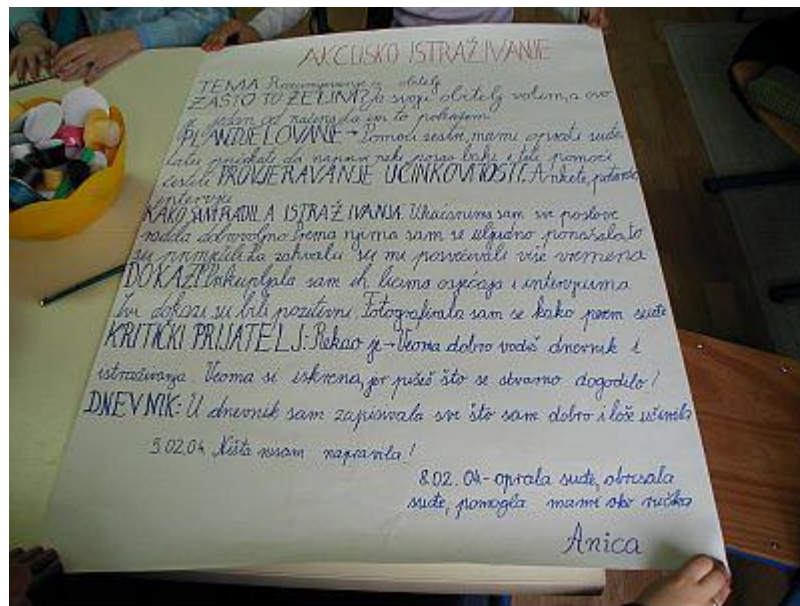 AKCIJSKO ISTRAŽIVANJE
TEMA Razumijevanje u obitelj
ZAŠTO TO ŽELIM? Ja svoju obitelj volim, a ovo
je jedan od načina da im to pokažem.
PLAN DJELOVANJE → Pomoći sestri, mami oprati suđe,
tati da neki posao bake i teti pomoći
čestiti PROVJERAVANJE UČINKOVITOSTI: Ankete,
intervju
KAKO SAM RADILA ISTRAŽIVANJA. Ukućanima sam sve poslove
radila dobrovoljno. Prema njima sam se uljudno ponašala, to
su primijetili. Za zahvalu su mi posvećivali više vremena
DOKAZI: Prikupljala sam ih licima osjećaja i intervjuima
Svi dokazi su bili pozitivni. Fotografirala sam se kako perem suđe
KRITIČKI PRIJATELJ: Rekao je → Veoma dobro vodiš dnevnik i
istraživanja Veoma si iskrena, jer pišeš što se stvarno dogodilo!
DNEVNIK: U dnevnik sam zapisivala sve što sam dobro i loše učinila
5.02.04. Ništa nisam napravila!
8.02.04 - oprala suđe, obrisala
suđe, pomogla mami oko ručka
Anica